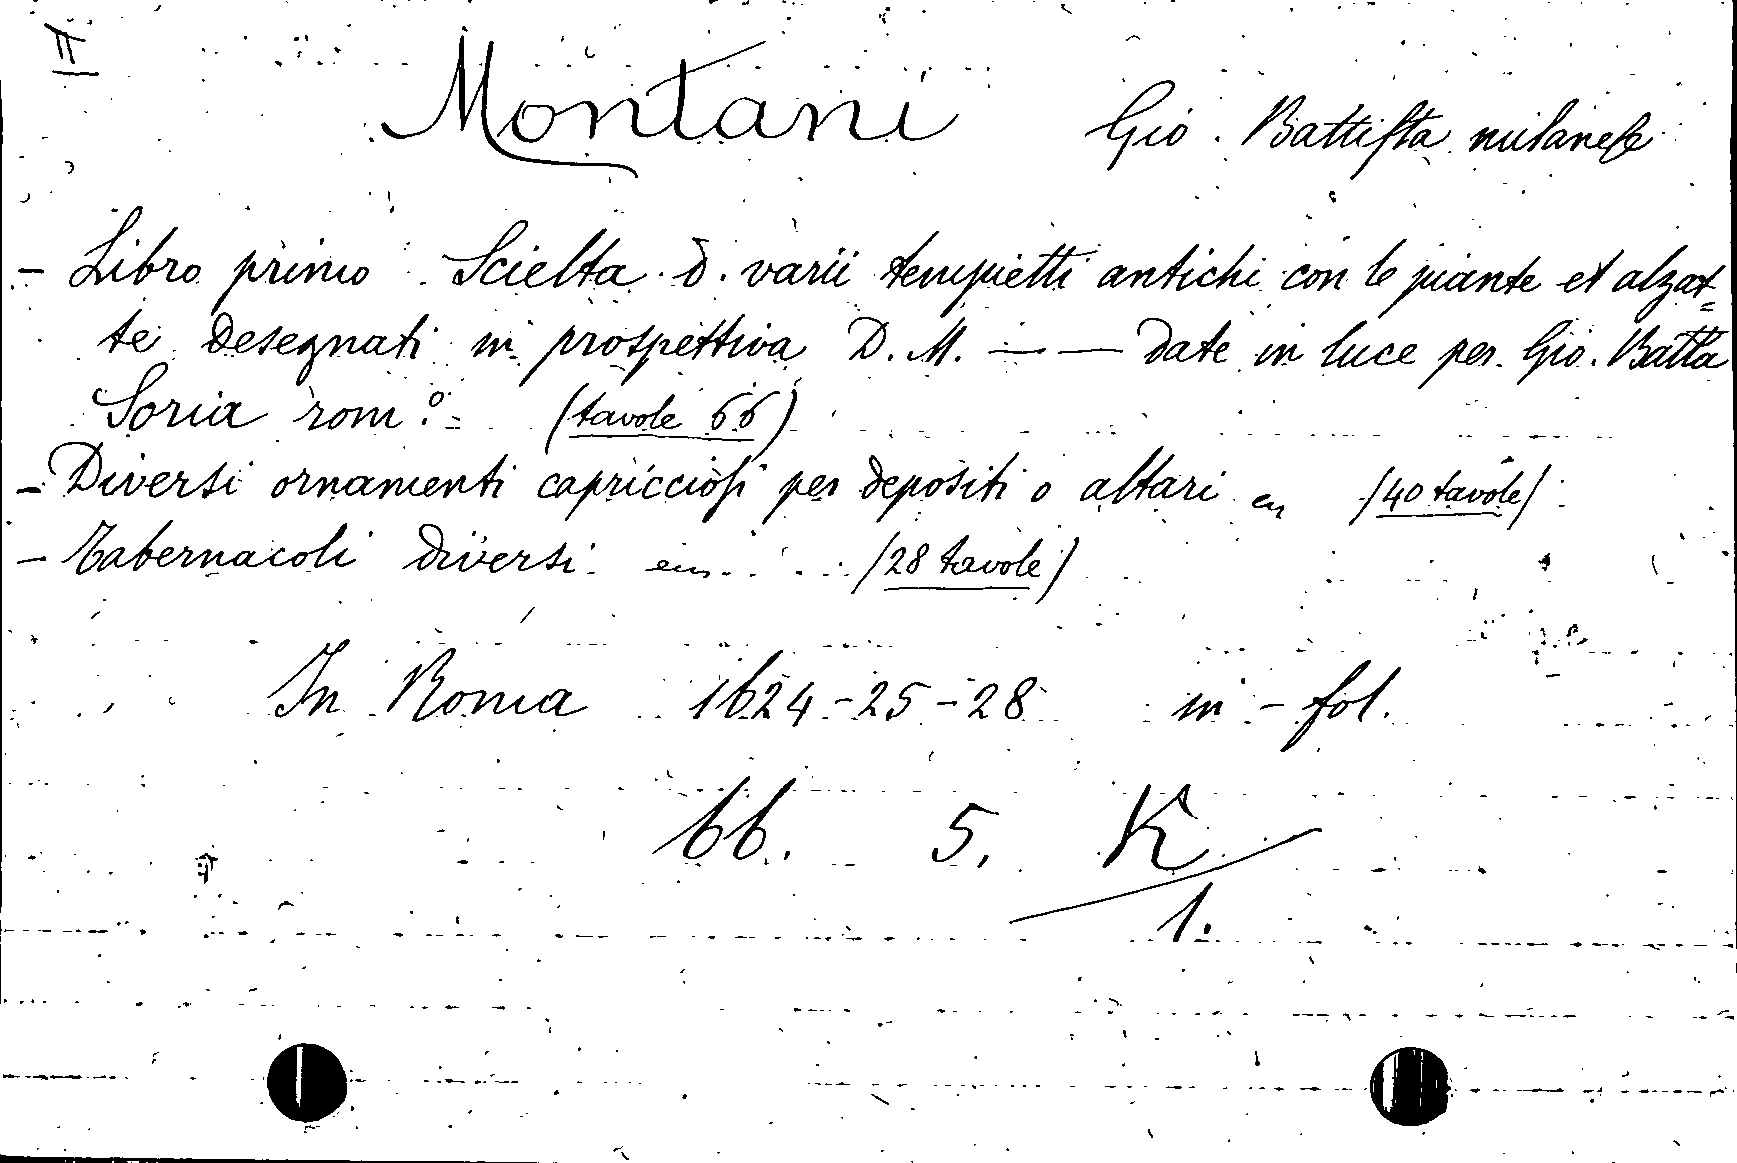 II
Montani Gio. Battista milanese
- Libro primo Scielta d. varii tempietti antichi con le piante et alzat=
te desegnati in prospettiva D. M. — — date in luce per Gio. Batta
Soria rom.º = (tavole 66)
- Diversi ornamenti capricciosi per depositi o altari (40 tavole)
- Tabernacoli diversi (28 tavole)
In Roma 1624-25-28 in-fol.
66. 5. K
1.